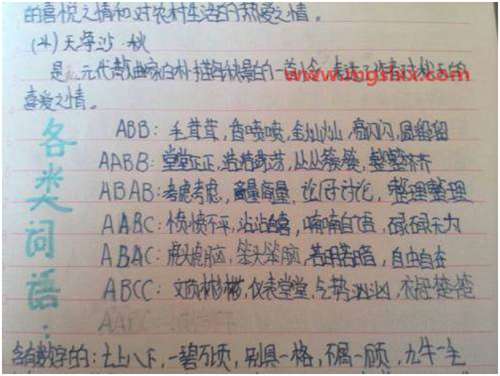 的喜悦之情和对农村生活的热爱之情。
(4) 天净沙·秋
是元代散曲家白朴描写秋景的一首小令
www.mgshix.com
喜爱之情。
各类词语：
ABB：毛茸茸，香喷喷，金灿灿，亮闪闪，圆溜溜
AABB：堂堂正正，浩浩荡荡，丛丛簇簇，整整齐齐
ABAB：考虑考虑，商量商量，讨论讨论，整理整理
AABC：愤愤不平，沾沾自喜，喃喃自语，碌碌无为
ABAC：虎头虎脑，笨头笨脑，若明若暗，自由自在
ABCC：文质彬彬，仪表堂堂，气势汹汹，衣冠楚楚
AABC：
含有数字的：七上八下，一碧万顷，别具一格，不屑一顾，九牛一毛